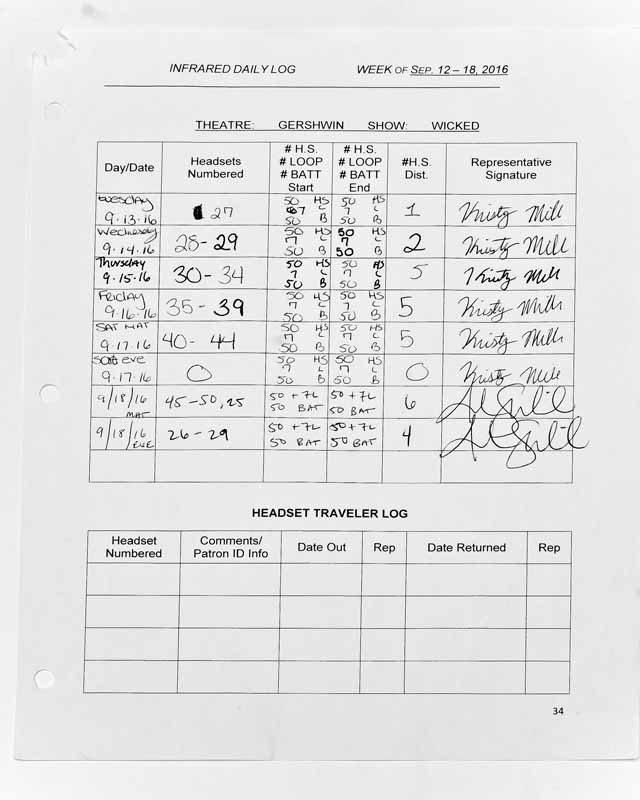 INFRARED DAILY LOG WEEK OF SEP. 12 – 18, 2016
THEATRE: GERSHWIN SHOW: WICKED
Day/Date
Headsets
Numbered
# H.S.
# LOOP
# BATT
Start
# H.S.
# LOOP
# BATT
End
#H.S.
Dist.
Representative
Signature
Tuesday
9.13.16
27
50 HS
7 L
50 B
50 HS
7 L
50 B
1
Kristy Mill
Wednesday
9.14.16
28-29
50 HS
7 L
50 B
50 HS
7 L
50 B
2
Kristy Mill
Thursday
9.15.16
30-34
50 HS
7 L
50 B
50 HS
7 L
50 B
5
Kristy Mill
Friday
9.16.16
35-39
50 HS
7 L
50 B
50 HS
7 L
50 B
5
Kristy Mill
SAT MAT
9.17.16
40-44
50 HS
7 L
50 B
50 HS
7 L
50 B
5
Kristy Mill
Sat eve
9.17.16
0
50 HS
7 L
50 B
50 HS
7 L
50 B
0
Kristy Mill
9/18/16
MAT
45-50, 25
50 + 7L
50 BAT
50 + 7L
50 BAT
6
9/18/16
EVE
26-29
50 + 7L
50 BAT
50 + 7L
50 BAT
4
HEADSET TRAVELER LOG
Headset
Numbered
Comments/
Patron ID Info
Date Out
Rep
Date Returned
Rep
34